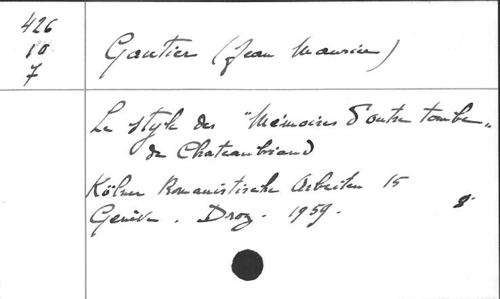 426
10
7
Gautier (Jean Maurice)
Le style des "Mémoires d'outre tombe"
de Chateaubriand
Kölner Romanistische Arbeiten 15
Genève. Droz. 1959. 8°